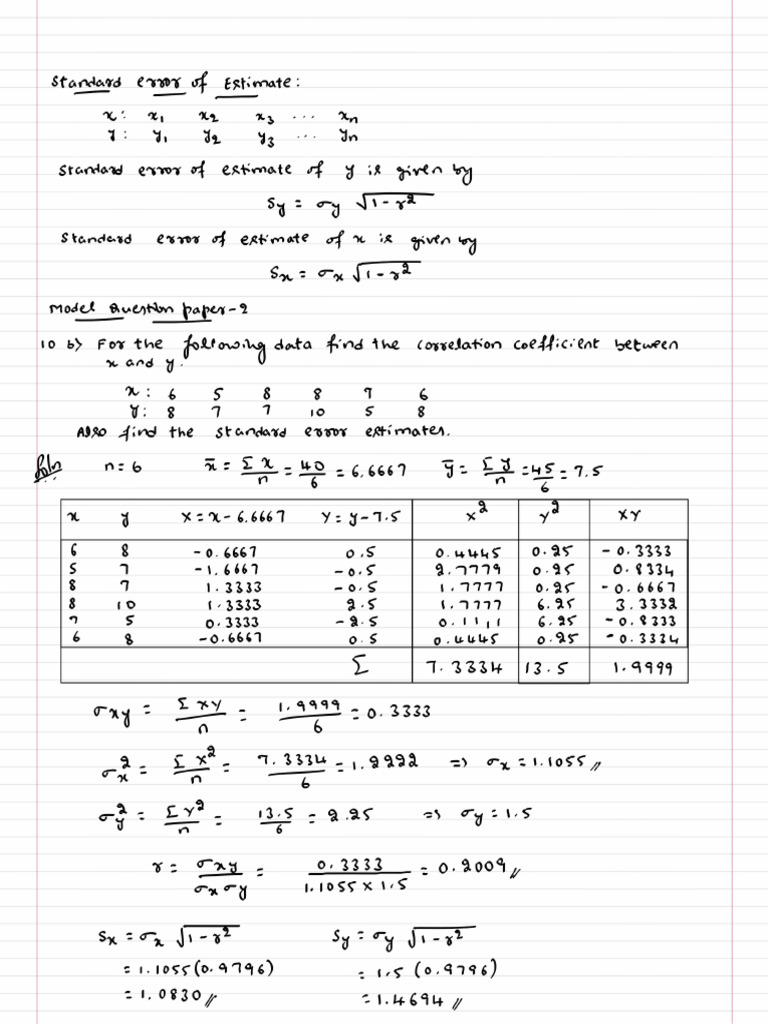 Standard error of Estimate:
x: x₁ x₂ x₃ ... xₙ
y: y₁ y₂ y₃ ... yₙ
Standard error of estimate of y is given by
Sy = σy √1-r²
Standard error of estimate of x is given by
Sx = σx √1-r²
Model Question paper-2
10 b) For the following data find the correlation coefficient between
x and y.
x: 6 5 8 8 7 6
y: 8 7 7 10 5 8
Also find the standard error estimates.
Soln n=6 x̄ = Σx/n = 40/6 = 6.6667 ȳ = Σy/n = 45/6 = 7.5
x y X=x-6.6667 Y=y-7.5 X² Y² XY
6 8 -0.6667 0.5 0.4445 0.25 -0.3333
5 7 -1.6667 -0.5 2.7779 0.25 0.8334
8 7 1.3333 -0.5 1.7777 0.25 -0.6667
8 10 1.3333 2.5 1.7777 6.25 3.3332
7 5 0.3333 -2.5 0.1111 6.25 -0.8333
6 8 -0.6667 0.5 0.4445 0.25 -0.3334
Σ 7.3334 13.5 1.9999
σxy = ΣXY/n = 1.9999/6 = 0.3333
σx² = ΣX²/n = 7.3334/6 = 1.2222 => σx = 1.1055//
σy² = ΣY²/n = 13.5/6 = 2.25 => σy = 1.5
r = σxy/σxσy = 0.3333/1.1055 x 1.5 = 0.2009//
Sx = σx √1-r² Sy = σy √1-r²
= 1.1055(0.9796) = 1.5 (0.9796)
= 1.0830// = 1.4694//